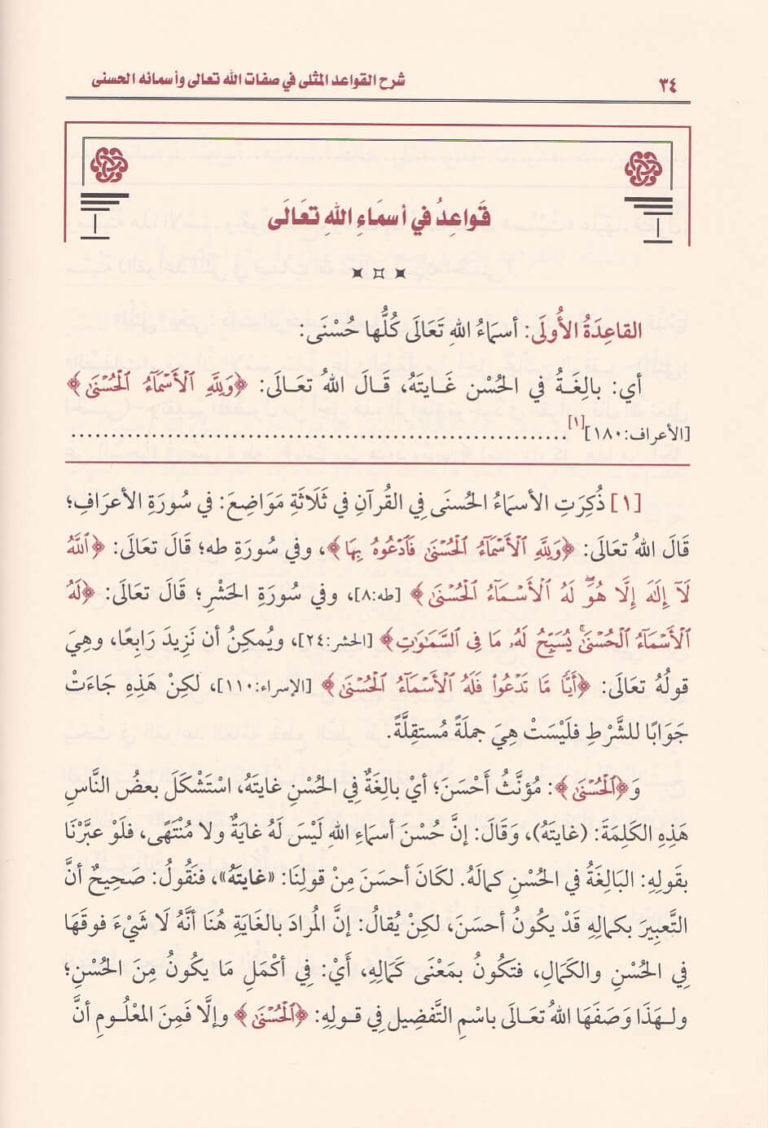 ٣٤ شرح القواعد المثلى في صفات الله تعالى وأسمائه الحسنى
قَواعِدُ في أسمَاءِ اللهِ تعَالَى
القاعِدَةُ الأُولَى: أسمَاءُ اللهِ تَعَالَى كُلُّها حُسْنَى:
أي: بالِغَةُ في الحُسْن غَايتَهُ، قَالَ اللهُ تعَالَى: ﴿وَلِلَّهِ ٱلْأَسْمَآءُ ٱلْحُسْنَىٰ﴾
[الأعراف:١٨٠][١]..............................................................
[١] ذُكِرَتِ الأسمَاءُ الحُسنَى فِي القُرآنِ فِي ثَلَاثَةِ مَوَاضِعَ: في سُورَةِ الأعرَافِ؛
قَالَ اللهُ تعَالَى: ﴿وَلِلَّهِ ٱلْأَسْمَآءُ ٱلْحُسْنَىٰ فَٱدْعُوهُ بِهَا﴾، وفي سُورَةِ طه؛ قَالَ تعَالَى: ﴿ٱللَّهُ
لَآ إِلَٰهَ إِلَّا هُوَ ۖ لَهُ ٱلْأَسْمَآءُ ٱلْحُسْنَىٰ﴾ [طه:٨]، وفي سُورَةِ الحَشْرِ؛ قَالَ تعَالَى: ﴿لَهُ
ٱلْأَسْمَآءُ ٱلْحُسْنَىٰ ۚ يُسَبِّحُ لَهُۥ مَا فِى ٱلسَّمَٰوَٰتِ﴾ [الحشر:٢٤]، ويُمكِنُ أن نَزِيدَ رَابِعًا، وهِيَ
قولُهُ تعَالَى: ﴿أَيًّا مَّا تَدْعُوا۟ فَلَهُ ٱلْأَسْمَآءُ ٱلْحُسْنَىٰ﴾ [الإسراء:١١٠]، لكِنْ هَذِهِ جَاءَتْ
جَوَابًا للشَّرْطِ فلَيْسَتْ هِيَ جملَةً مُستقِلَّةً.
وَ﴿ٱلْحُسْنَىٰ﴾: مُؤنَّثُ أَحْسَنَ؛ أيْ بالِغَةٌ فِي الحُسْنِ غايتَهُ، اسْتَشْكَلَ بعضُ النَّاسِ
هَذِهِ الكَلِمَةَ: (غايتَهُ)، وَقَالَ: إنَّ حُسْنَ أسمَاءِ اللهِ لَيْسَ لَهُ غايَةٌ ولا مُنْتَهًى، فلَوْ عبَّرْنَا
بقَولِهِ: البَالِغَةُ في الحُسْنِ كمالَهُ. لكَانَ أحسَنَ مِنْ قولِنَا: «غايتَهُ»، فنَقُولُ: صَحِيحٌ أنَّ
التَّعبِيرَ بكمالِهِ قَدْ يكُونُ أحسَنَ، لكِنْ يُقالُ: إنَّ المُرادَ بالغَايَةِ هُنَا أنَّهُ لَا شَيْءَ فوقَهَا
فِي الحُسْنِ والكَمَالِ، فتكُونُ بمَعْنَى كَمَالِهِ، أَيْ: فِي أكْمَلِ مَا يكُونُ مِنَ الحُسْنِ؛
ولهَذَا وَصَفَهَا اللهُ تعَالَى باسْمِ التَّفضِيلِ فِي قولِهِ: ﴿ٱلْحُسْنَىٰ﴾ وإلَّا فَمِنَ المَعْلُومِ أنَّ